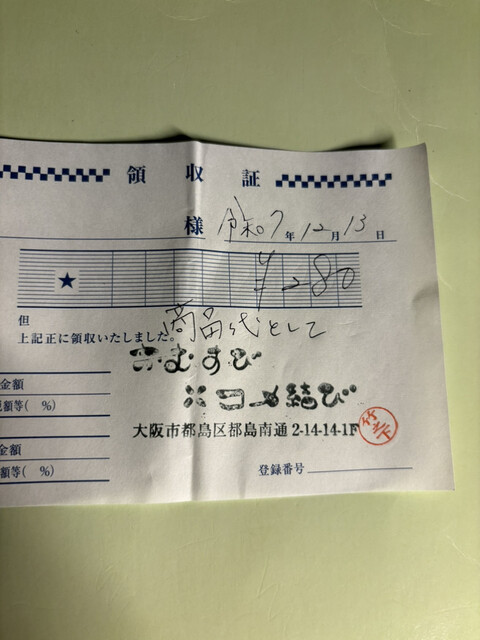 領収証
様 令和7年12月13日
★ ¥280
但 商品代として
上記正に領収いたしました。
おむすび
コメ結び
大阪市都島区都島南通 2-14-14-1F
竹下
金額
額等( %)
金額
額等( %)
登録番号